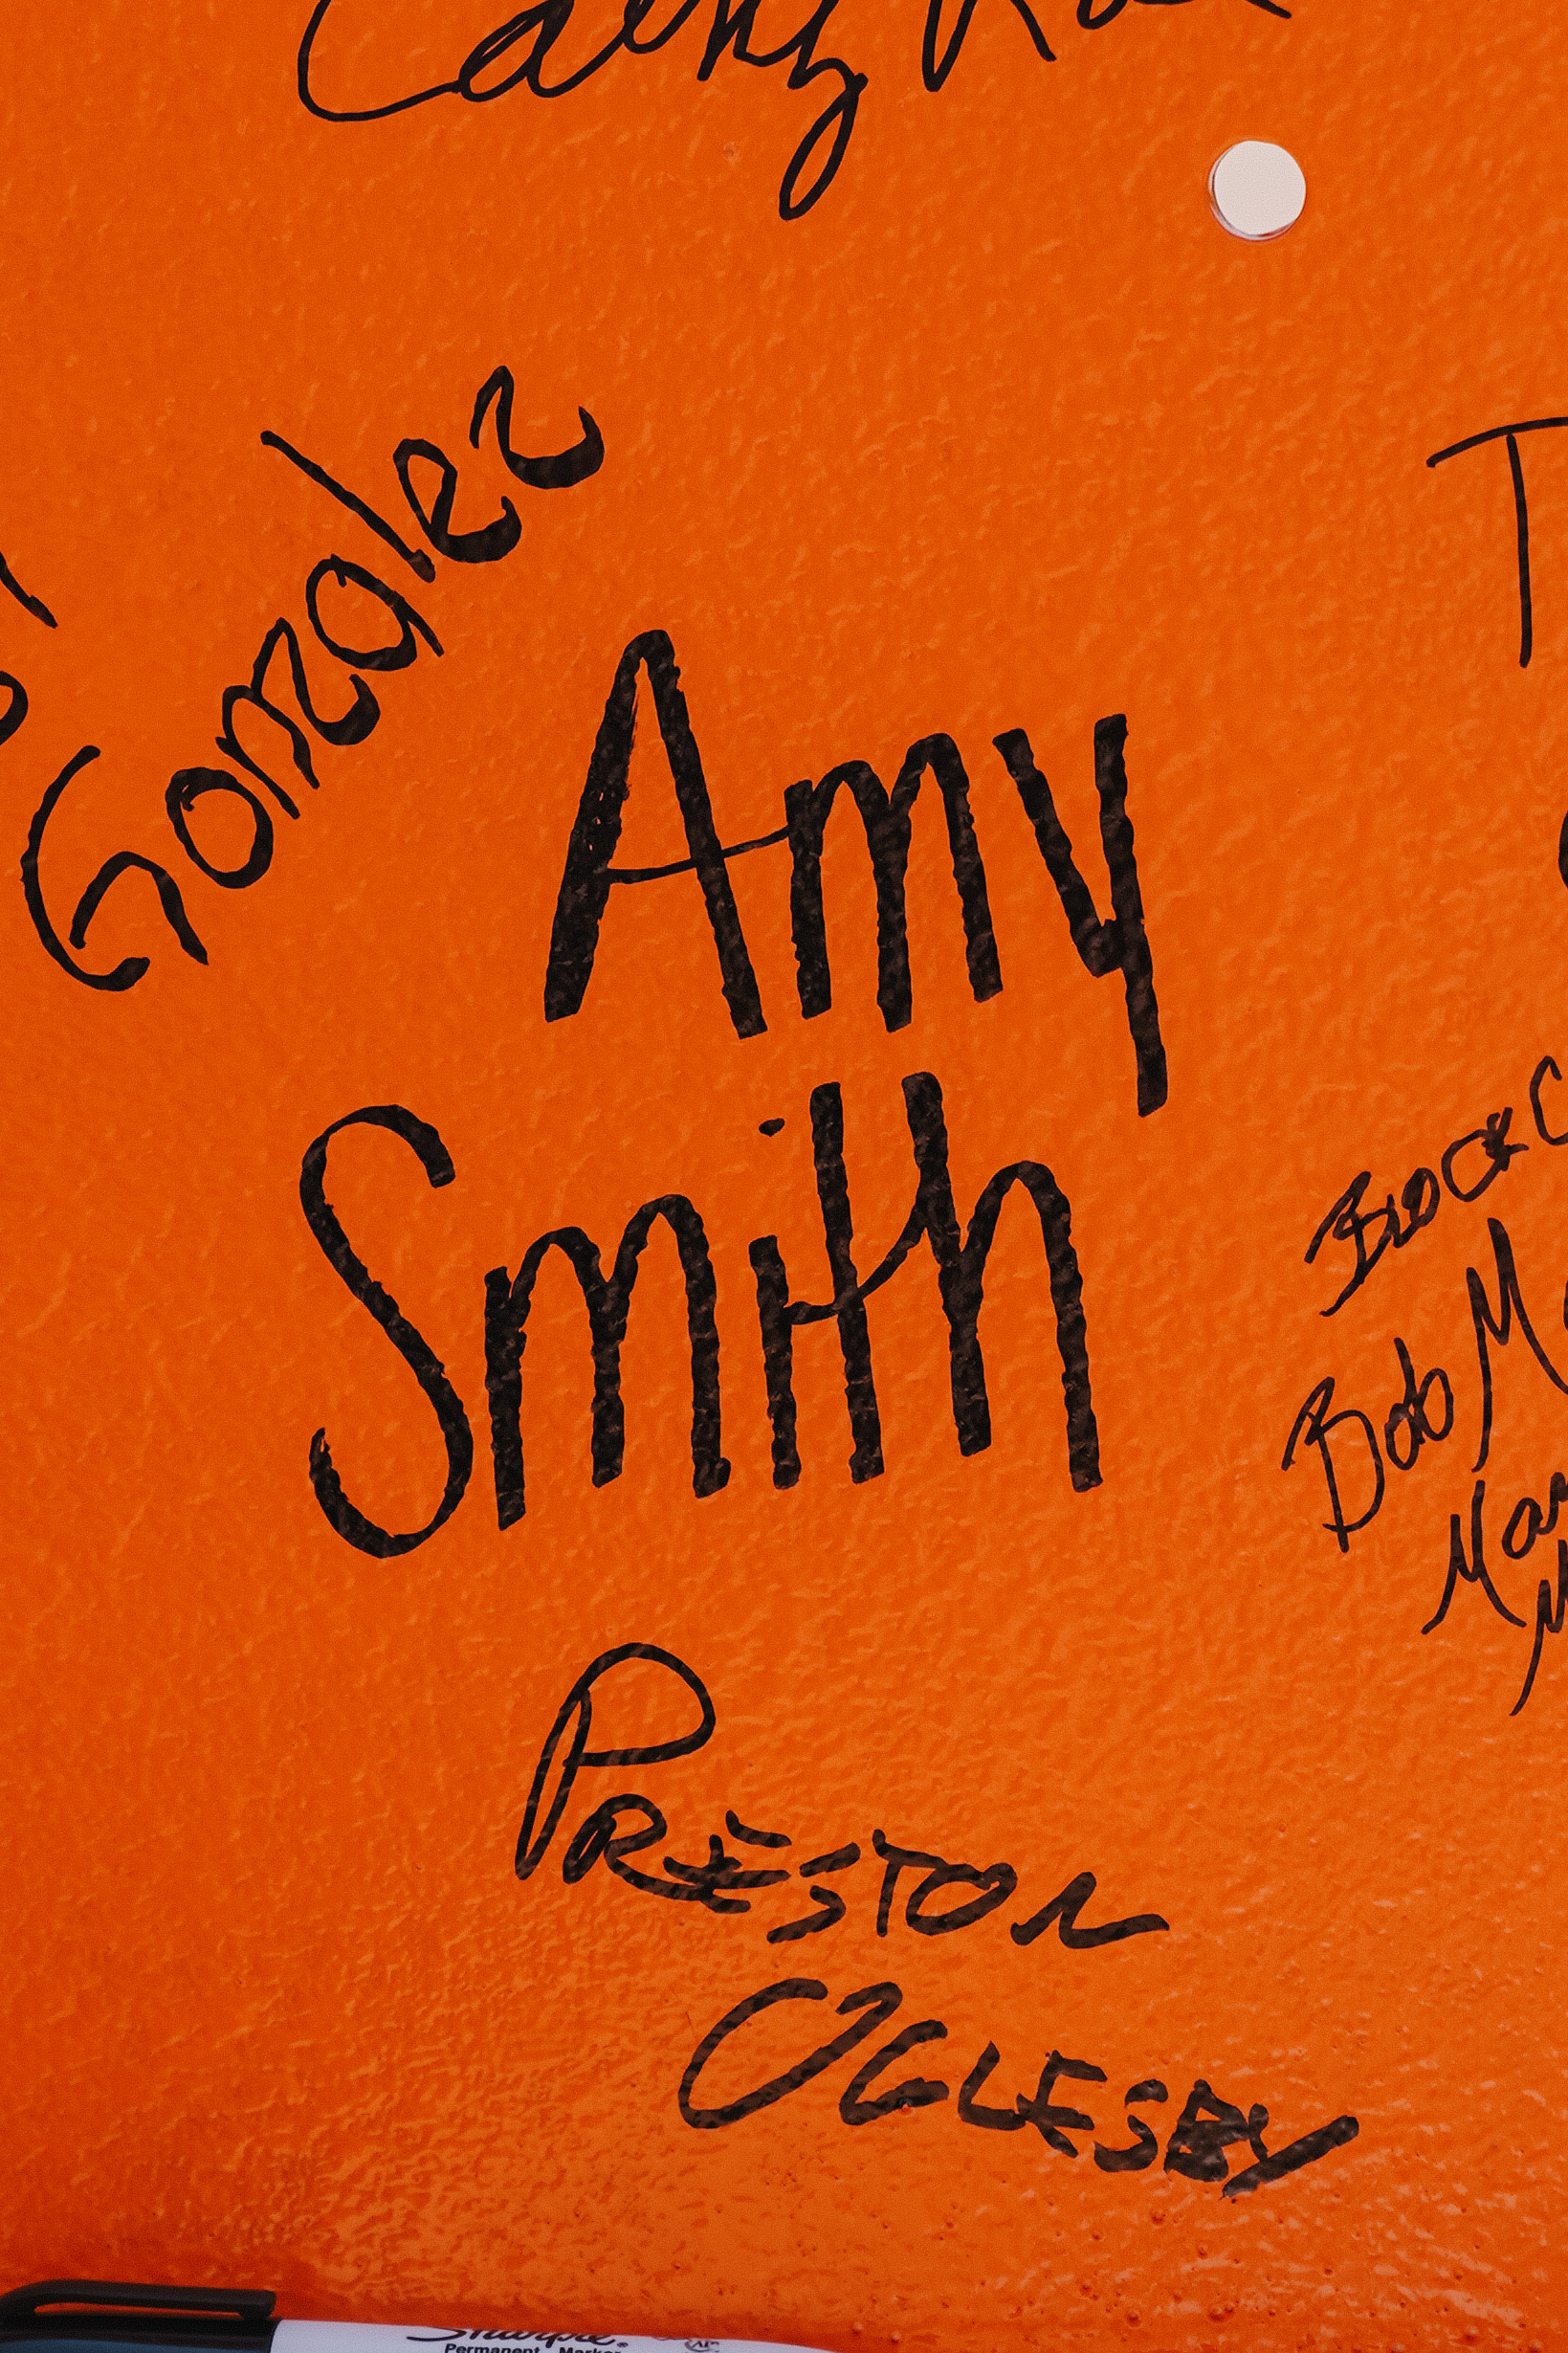 Cathy
Gonzalez
Amy
Smith
Block
Bob
PRESTON
OGLESBY
Sharpie
Permanent Marker